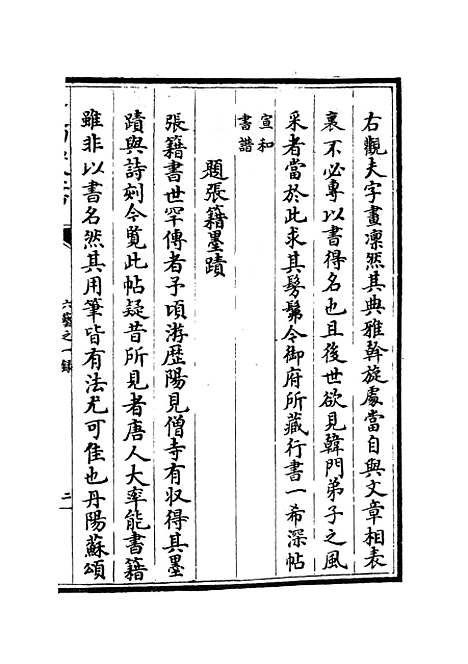 右觀夫字畫凛然其典雅斡旋處當自與文章相表
裏不必專以書得名也且後世欲見韓門弟子之風
采者當於此求其髣髴今御府所藏行書一希深帖
宣和
書譜
題張籍墨蹟
張籍書世罕傳者予頃游歴陽見僧寺有収得其墨
蹟與詩刻今覧此帖疑昔所見者唐人大率能書籍
雖非以書名然其用筆皆有法尤可隹也丹陽蘇頌
六藝之一録
二